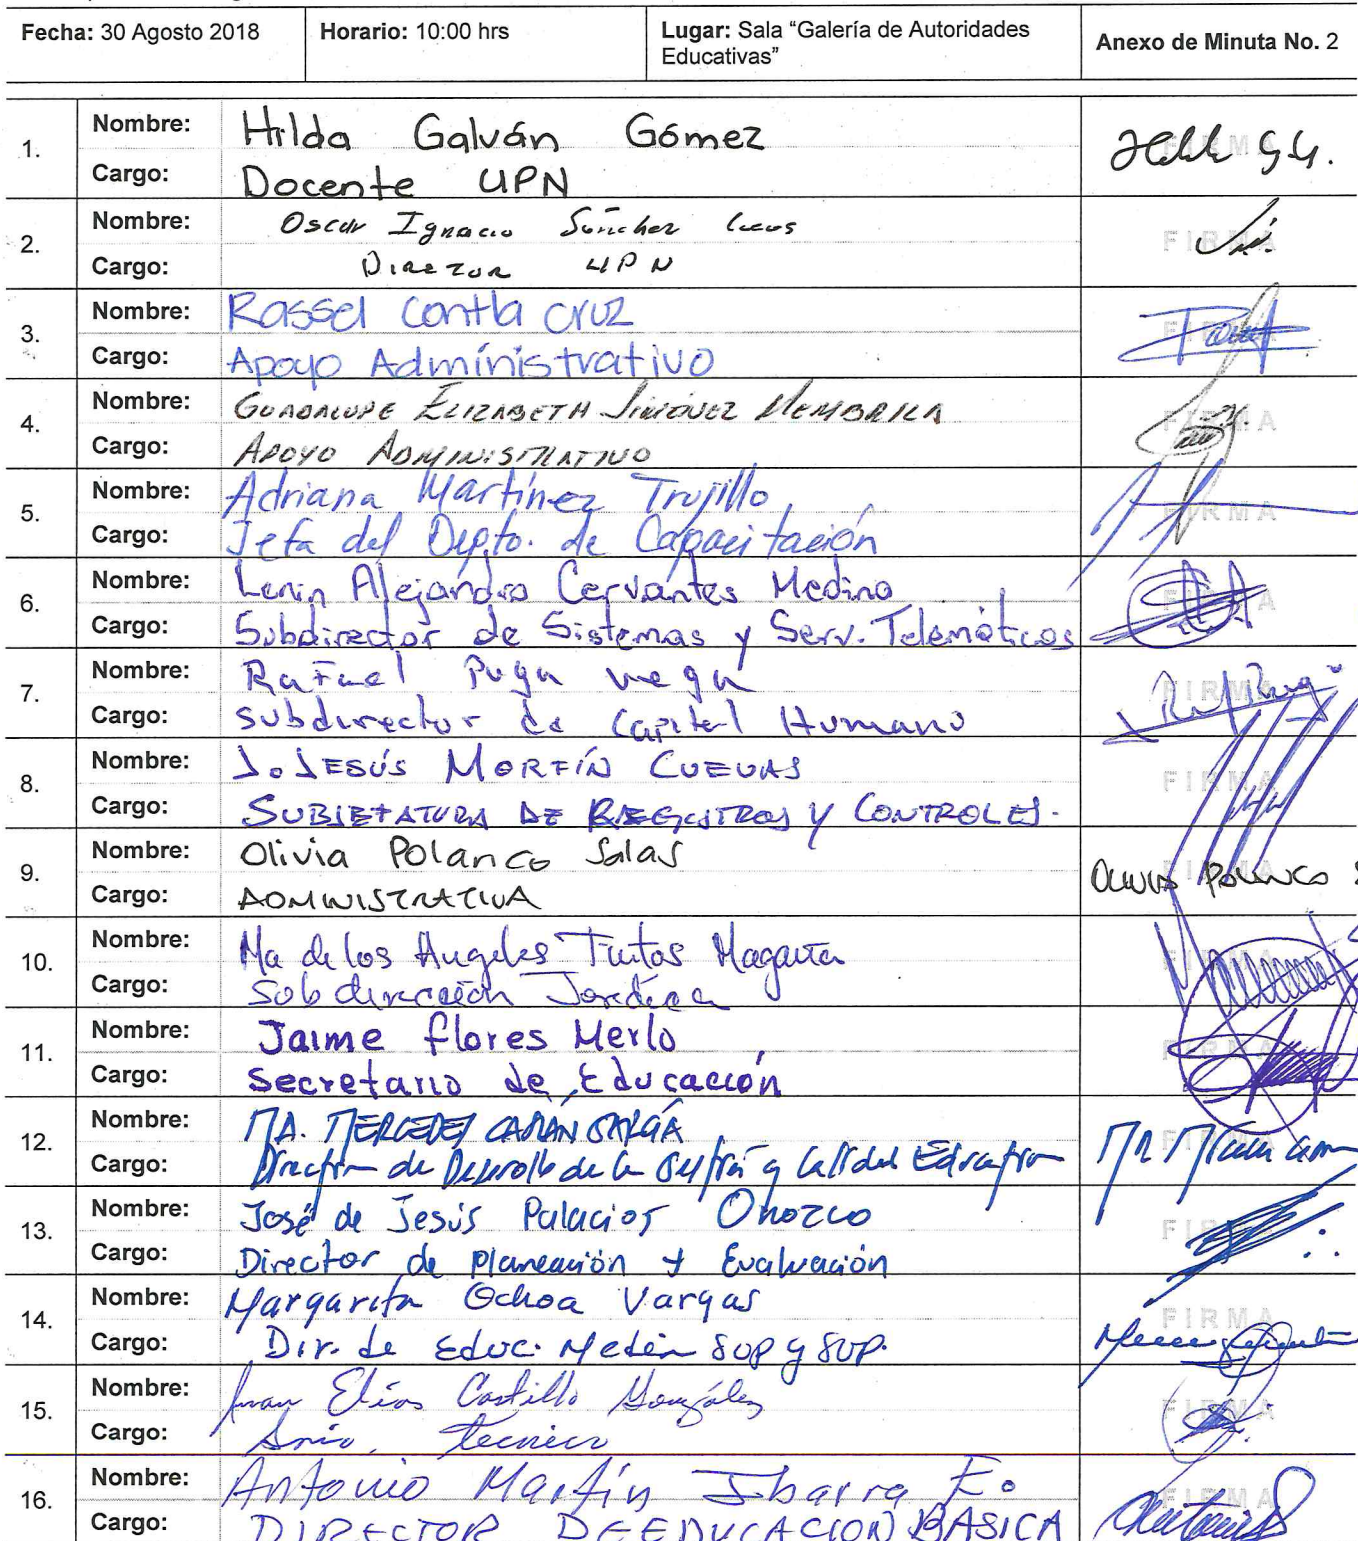 Fecha: 30 Agosto 2018 Horario: 10:00 hrs Lugar: Sala “Galería de Autoridades Educativas” Anexo de Minuta No. 2
1. Nombre: Hilda Galván Gómez
Cargo: Docente UPN
FIRMA
2. Nombre: Oscar Ignacio Sánchez
Cargo: Director UPN
FIRMA
3. Nombre: Rossel Contla cruz
Cargo: Apoyo Administrativo
FIRMA
4. Nombre: GUADALUPE ELIZABETH JIMÉNEZ MEMBRILA
Cargo: APOYO ADMINISTRATIVO
FIRMA
5. Nombre: Adriana Martínez Trujillo
Cargo: Jefa del Depto. de Capacitación
FIRMA
6. Nombre: Lenin Alejandro Cervantes Medina
Cargo: Subdirector de Sistemas y Serv. Telemáticos
FIRMA
7. Nombre: Rafael Puga vega
Cargo: subdirector de Capital Humano
FIRMA
8. Nombre: J. JESÚS MORFÍN CUEVAS
Cargo: SUBJEFATURA DE REGISTROS Y CONTROLES.
FIRMA
9. Nombre: Olivia Polanco Salas
Cargo: ADMINISTRATIVA
FIRMA OLIVIA POLANCO S
10. Nombre: Ma de los Angeles Tintos Magaña
Cargo: Subdirección Jurídica
FIRMA
11. Nombre: Jaime flores Merlo
Cargo: secretario de Educación
FIRMA
12. Nombre: MA. MERCEDES
Cargo: de Desarrollo de la Gestión y Calidad
FIRMA
13. Nombre: José de Jesús Palacios Orozco
Cargo: Director de Planeación y Evaluación
FIRMA
14. Nombre: Margarita Ochoa Vargas
Cargo: Dir. de Educ. Media sup y sup.
FIRMA
15. Nombre: Juan Elías Castillo González
Cargo: Srio. Técnico
FIRMA
16. Nombre: Antonio Martín Ibarra E.
Cargo: DIRECTOR DE EDUCACION BASICA
FIRMA